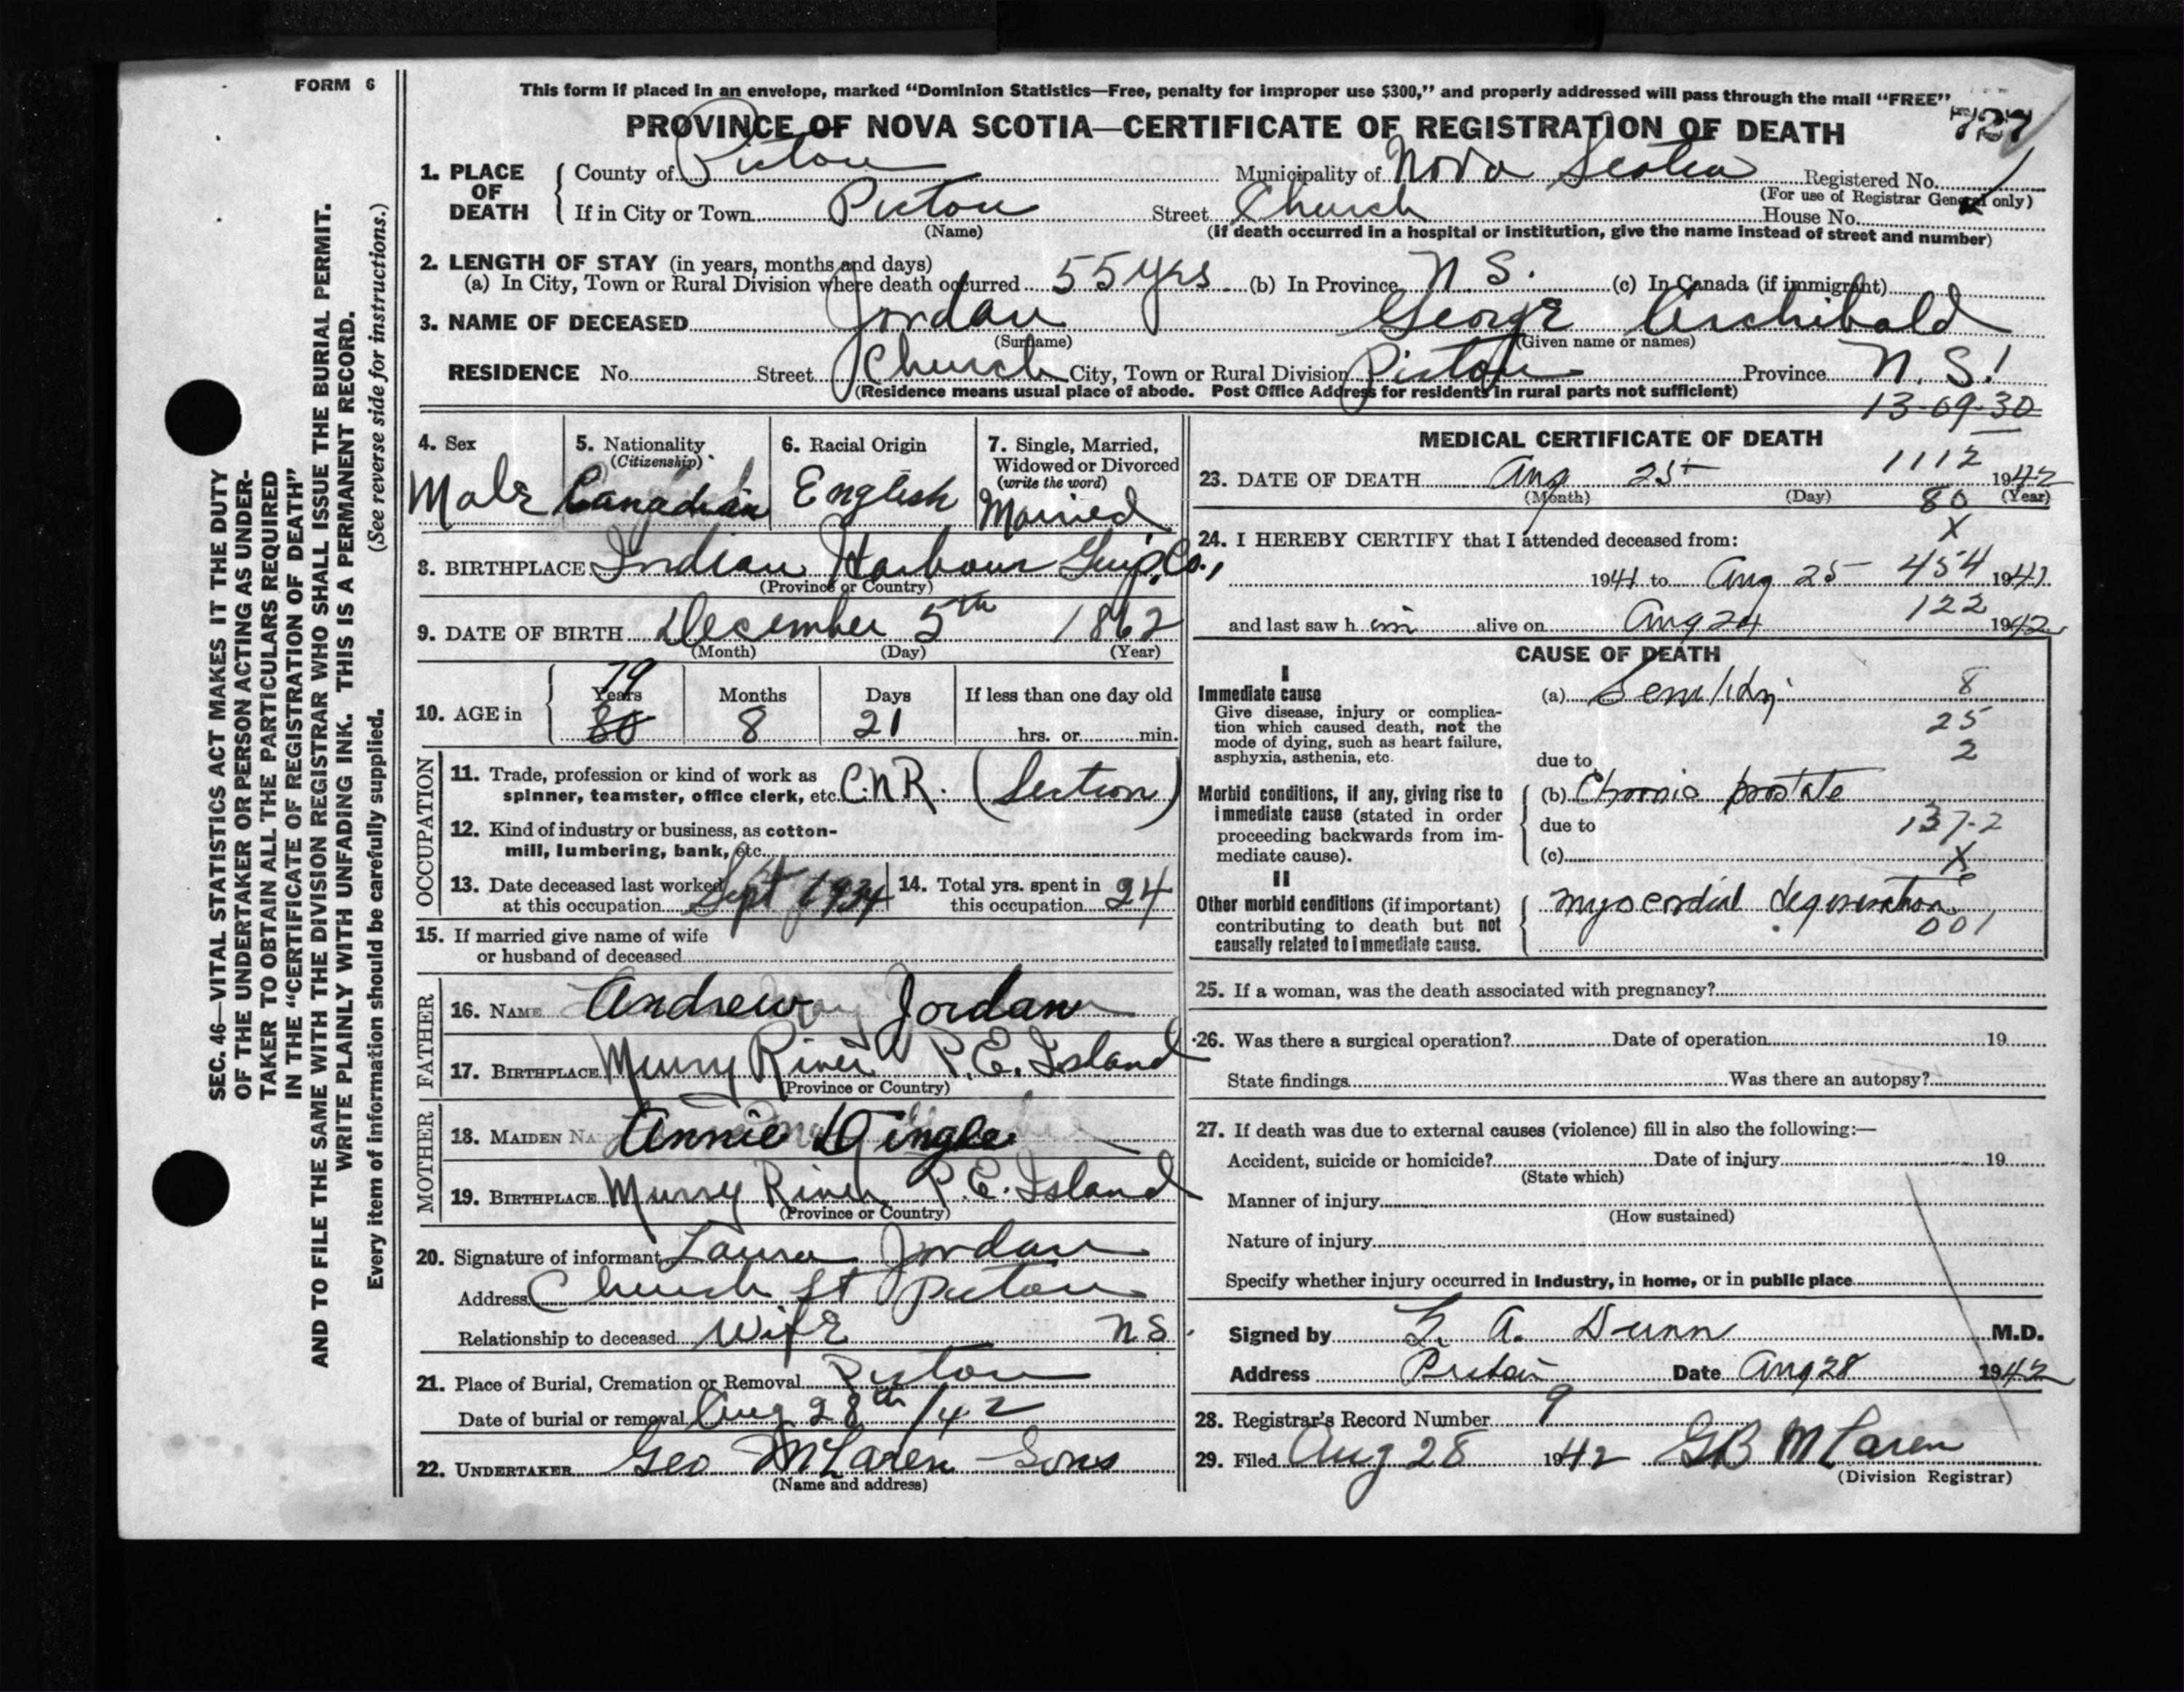 FORM 6
This form if placed in an envelope, marked “Dominion Statistics—Free, penalty for improper use $300,” and properly addressed will pass through the mail “FREE”
PROVINCE OF NOVA SCOTIA—CERTIFICATE OF REGISTRATION OF DEATH
727
1. PLACE OF DEATH County of Pictou Municipality of Nova Scotia Registered No. 1
(For use of Registrar General only)
If in City or Town Pictou Street Church House No.
(Name) (If death occurred in a hospital or institution, give the name instead of street and number)
2. LENGTH OF STAY (in years, months and days)
(a) In City, Town or Rural Division where death occurred 55 yrs (b) In Province N S. (c) In Canada (if immigrant)
3. NAME OF DECEASED Jordan George Archibald
(Surname) (Given name or names)
RESIDENCE No. Street Church City, Town or Rural Division Pictou Province N.S.
(Residence means usual place of abode. Post Office Address for residents in rural parts not sufficient)
13-09-30
4. Sex Male
5. Nationality (Citizenship) Canadian
6. Racial Origin English
7. Single, Married, Widowed or Divorced (write the word) Married
8. BIRTHPLACE Indian Harbour Guy. Co.,
(Province or Country)
9. DATE OF BIRTH December 5th 1862
(Month) (Day) (Year)
10. AGE in Years 79 80 Months 8 Days 21 If less than one day old hrs. or min.
OCCUPATION
11. Trade, profession or kind of work as spinner, teamster, office clerk, etc. C.N.R. (Section)
12. Kind of industry or business, as cotton-mill, lumbering, bank, etc.
13. Date deceased last worked at this occupation Sept 1934
14. Total yrs. spent in this occupation 24
15. If married give name of wife or husband of deceased
FATHER
16. NAME Andrew Jordan
17. BIRTHPLACE Murry River P.E. Island
(Province or Country)
MOTHER
18. MAIDEN NAME Annie Dingle
19. BIRTHPLACE Murry River P.E. Island
(Province or Country)
20. Signature of informant Laura Jordan
Address Church St Pictou
Relationship to deceased Wife N.S.
21. Place of Burial, Cremation or Removal Pictou
Date of burial or removal Aug 28th/42
22. UNDERTAKER Geo McLaren Sons
(Name and address)
MEDICAL CERTIFICATE OF DEATH
23. DATE OF DEATH Aug 25 1942
(Month) (Day) (Year)
1112
80
X
24. I HEREBY CERTIFY that I attended deceased from:
1941 to Aug 25 1942
454
and last saw h im alive on Aug 24 1942
122
CAUSE OF DEATH
I
Immediate cause
Give disease, injury or complication which caused death, not the mode of dying, such as heart failure, asphyxia, asthenia, etc.
(a) Senility
8
25
2
due to
Morbid conditions, if any, giving rise to immediate cause (stated in order proceeding backwards from immediate cause).
(b) Chronic prostate
due to
137-2
(c)
X
II
Other morbid conditions (if important) contributing to death but not causally related to immediate cause.
myocordial degeneration
001
25. If a woman, was the death associated with pregnancy?
26. Was there a surgical operation? Date of operation 19
State findings Was there an autopsy?
27. If death was due to external causes (violence) fill in also the following:—
Accident, suicide or homicide? Date of injury 19
(State which)
Manner of injury
(How sustained)
Nature of injury
Specify whether injury occurred in Industry, in home, or in public place
Signed by A. Dunn M.D.
Address Pictou Date Aug 28 1942
28. Registrar's Record Number 9
29. Filed Aug 28 1942 GB McLaren
(Division Registrar)
SEC. 46—VITAL STATISTICS ACT MAKES IT THE DUTY
OF THE UNDERTAKER OR PERSON ACTING AS UNDER-
TAKER TO OBTAIN ALL THE PARTICULARS REQUIRED
IN THE “CERTIFICATE OF REGISTRATION OF DEATH”
AND TO FILE THE SAME WITH THE DIVISION REGISTRAR WHO SHALL ISSUE THE BURIAL PERMIT.
WRITE PLAINLY WITH UNFADING INK. THIS IS A PERMANENT RECORD.
Every item of information should be carefully supplied. (See reverse side for instructions.)